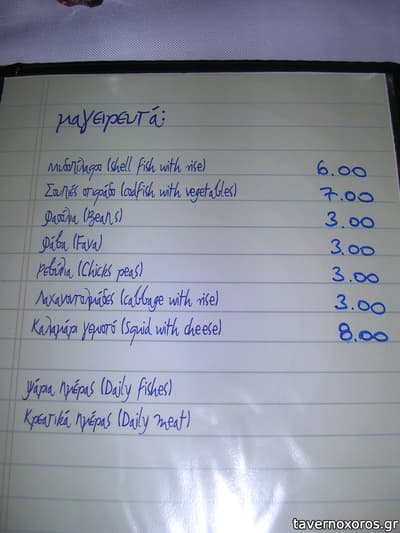 μαγειρευτά:
Μυδοπίλαφο (shell fish with rise) 6.00
Σουπιές στιφάδο (codfish with vegetables) 7.00
Φασόλια (Beans) 3.00
Φάβα (Fava) 3.00
Ρεβύθια (Chicks peas) 3.00
Λαχανοντολμάδες (cabbage with rise) 3.00
Καλαμάρι γεμιστό (squid with cheese) 8.00
Ψάρια ημέρας (Daily fishes)
Κρεατικά ημέρας (Daily meat)
tavernoxoros.gr